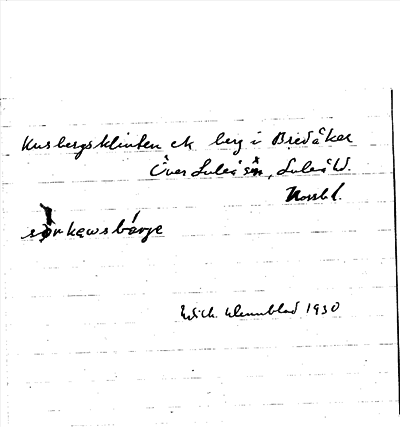 Kusbergsklinten ett berg i Bredåker
Över Luleå sn, Luleå td.
Norrb l.
sör kewsbärje
Wennblad 1930